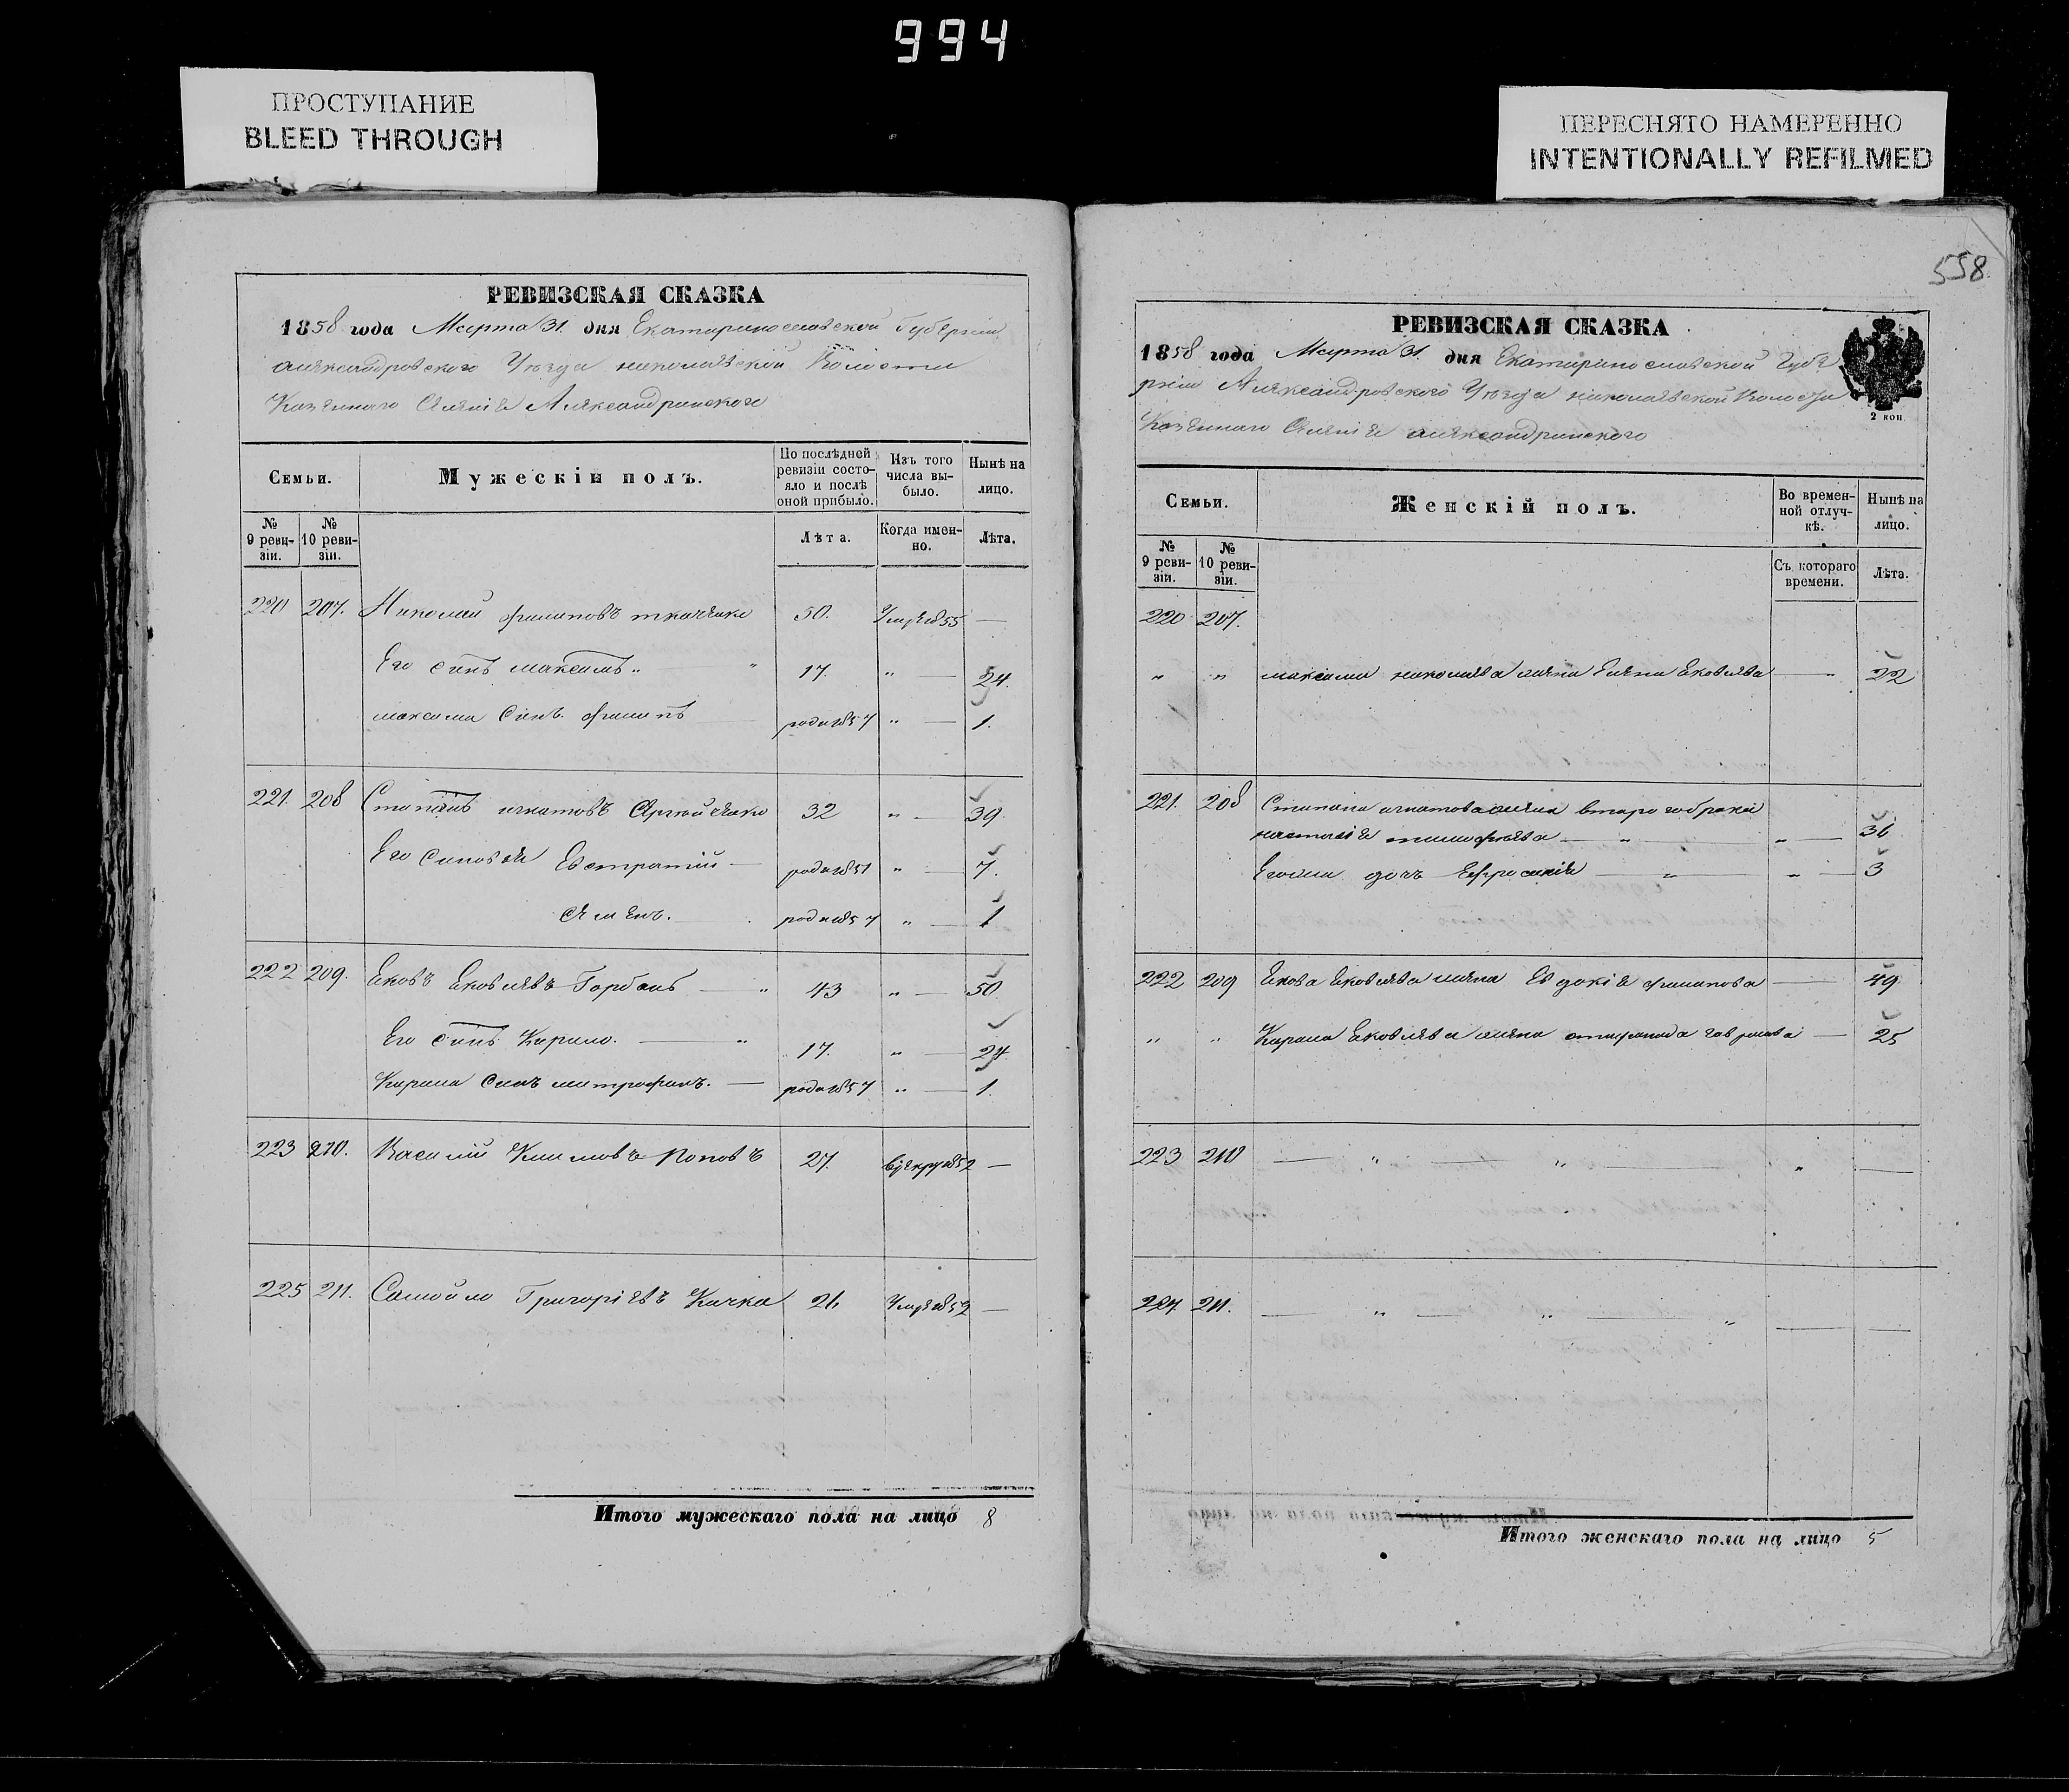 994
ПРОСТУПАНИЕ
BLEED THROUGH
ПЕРЕСНЯТО НАМЕРЕННО
INTENTIONALLY REFILMED
РЕВИЗСКАЯ СКАЗКА
1858 года Марта 31. дня Екатеринославской Губернии
Александровского Уезда николаевской Волости
Казенного Селение Александринского
Семьи.
Мужескій полъ.
По послѣдней ревизіи состояло и послѣ оной прибыло.
Изъ того числа выбыло.
Нынѣ на лицо.
№ 9 ревизіи.
№ 10 ревизіи.
Лѣта.
Когда именно.
Лѣта.
220 207. Николай филиповъ ткаченко 50. Умре 1855 —
Его синъ максимъ „ „ 17. „ — 24.
максима синъ филипъ роди 1857 „ — 1.
221. 208 Степанъ игнатовъ 32 „ — 39.
Его синовя Евстратий — роди 1851 „ — 7.
Семенъ. роди 1857 „ — 1
222 209. Яковъ Яковлевъ Горбань — „ 43 „ — 50.
Его синъ Кирило. — „ 17. „ — 24
Кирила синъ митрофанъ. — роди 1857 „ — 1.
223 210. Василий Климовъ Поповъ 27. 1852 —
225 211. Самойло Григоріевъ Качка 21. Умре 1852 —
Итого мужескаго пола на лицо 8
558.
РЕВИЗСКАЯ СКАЗКА
1858 года Марта 31. дня Екатеринославской Губе
рнии Александровского Уезда николаевской Волости
Казенного Селение александринского
2 коп.
Семьи.
Женскій полъ.
Во временной отлучкѣ.
Нынѣ на лицо.
№ 9 ревизіи.
№ 10 ревизіи.
Съ котораго времени.
Лѣта.
220 207.
„ „ максима николаева жена Елена Яковлева — „ 22
221. 208 Степана игнатова жена второго брака
наталие тимофеева — „ — „ — 36
Его дочъ Ефросиние — „ — „ — 3
222 209 Якова Яковлева жена Евдокие филипова — 49
„ „ Кирила Яковлева жена степанида гаврилова — 25
223 210 — „ — „ — „ —
224. 211. — „ — „ — „ — —
Итого женскаго пола на лицо 5